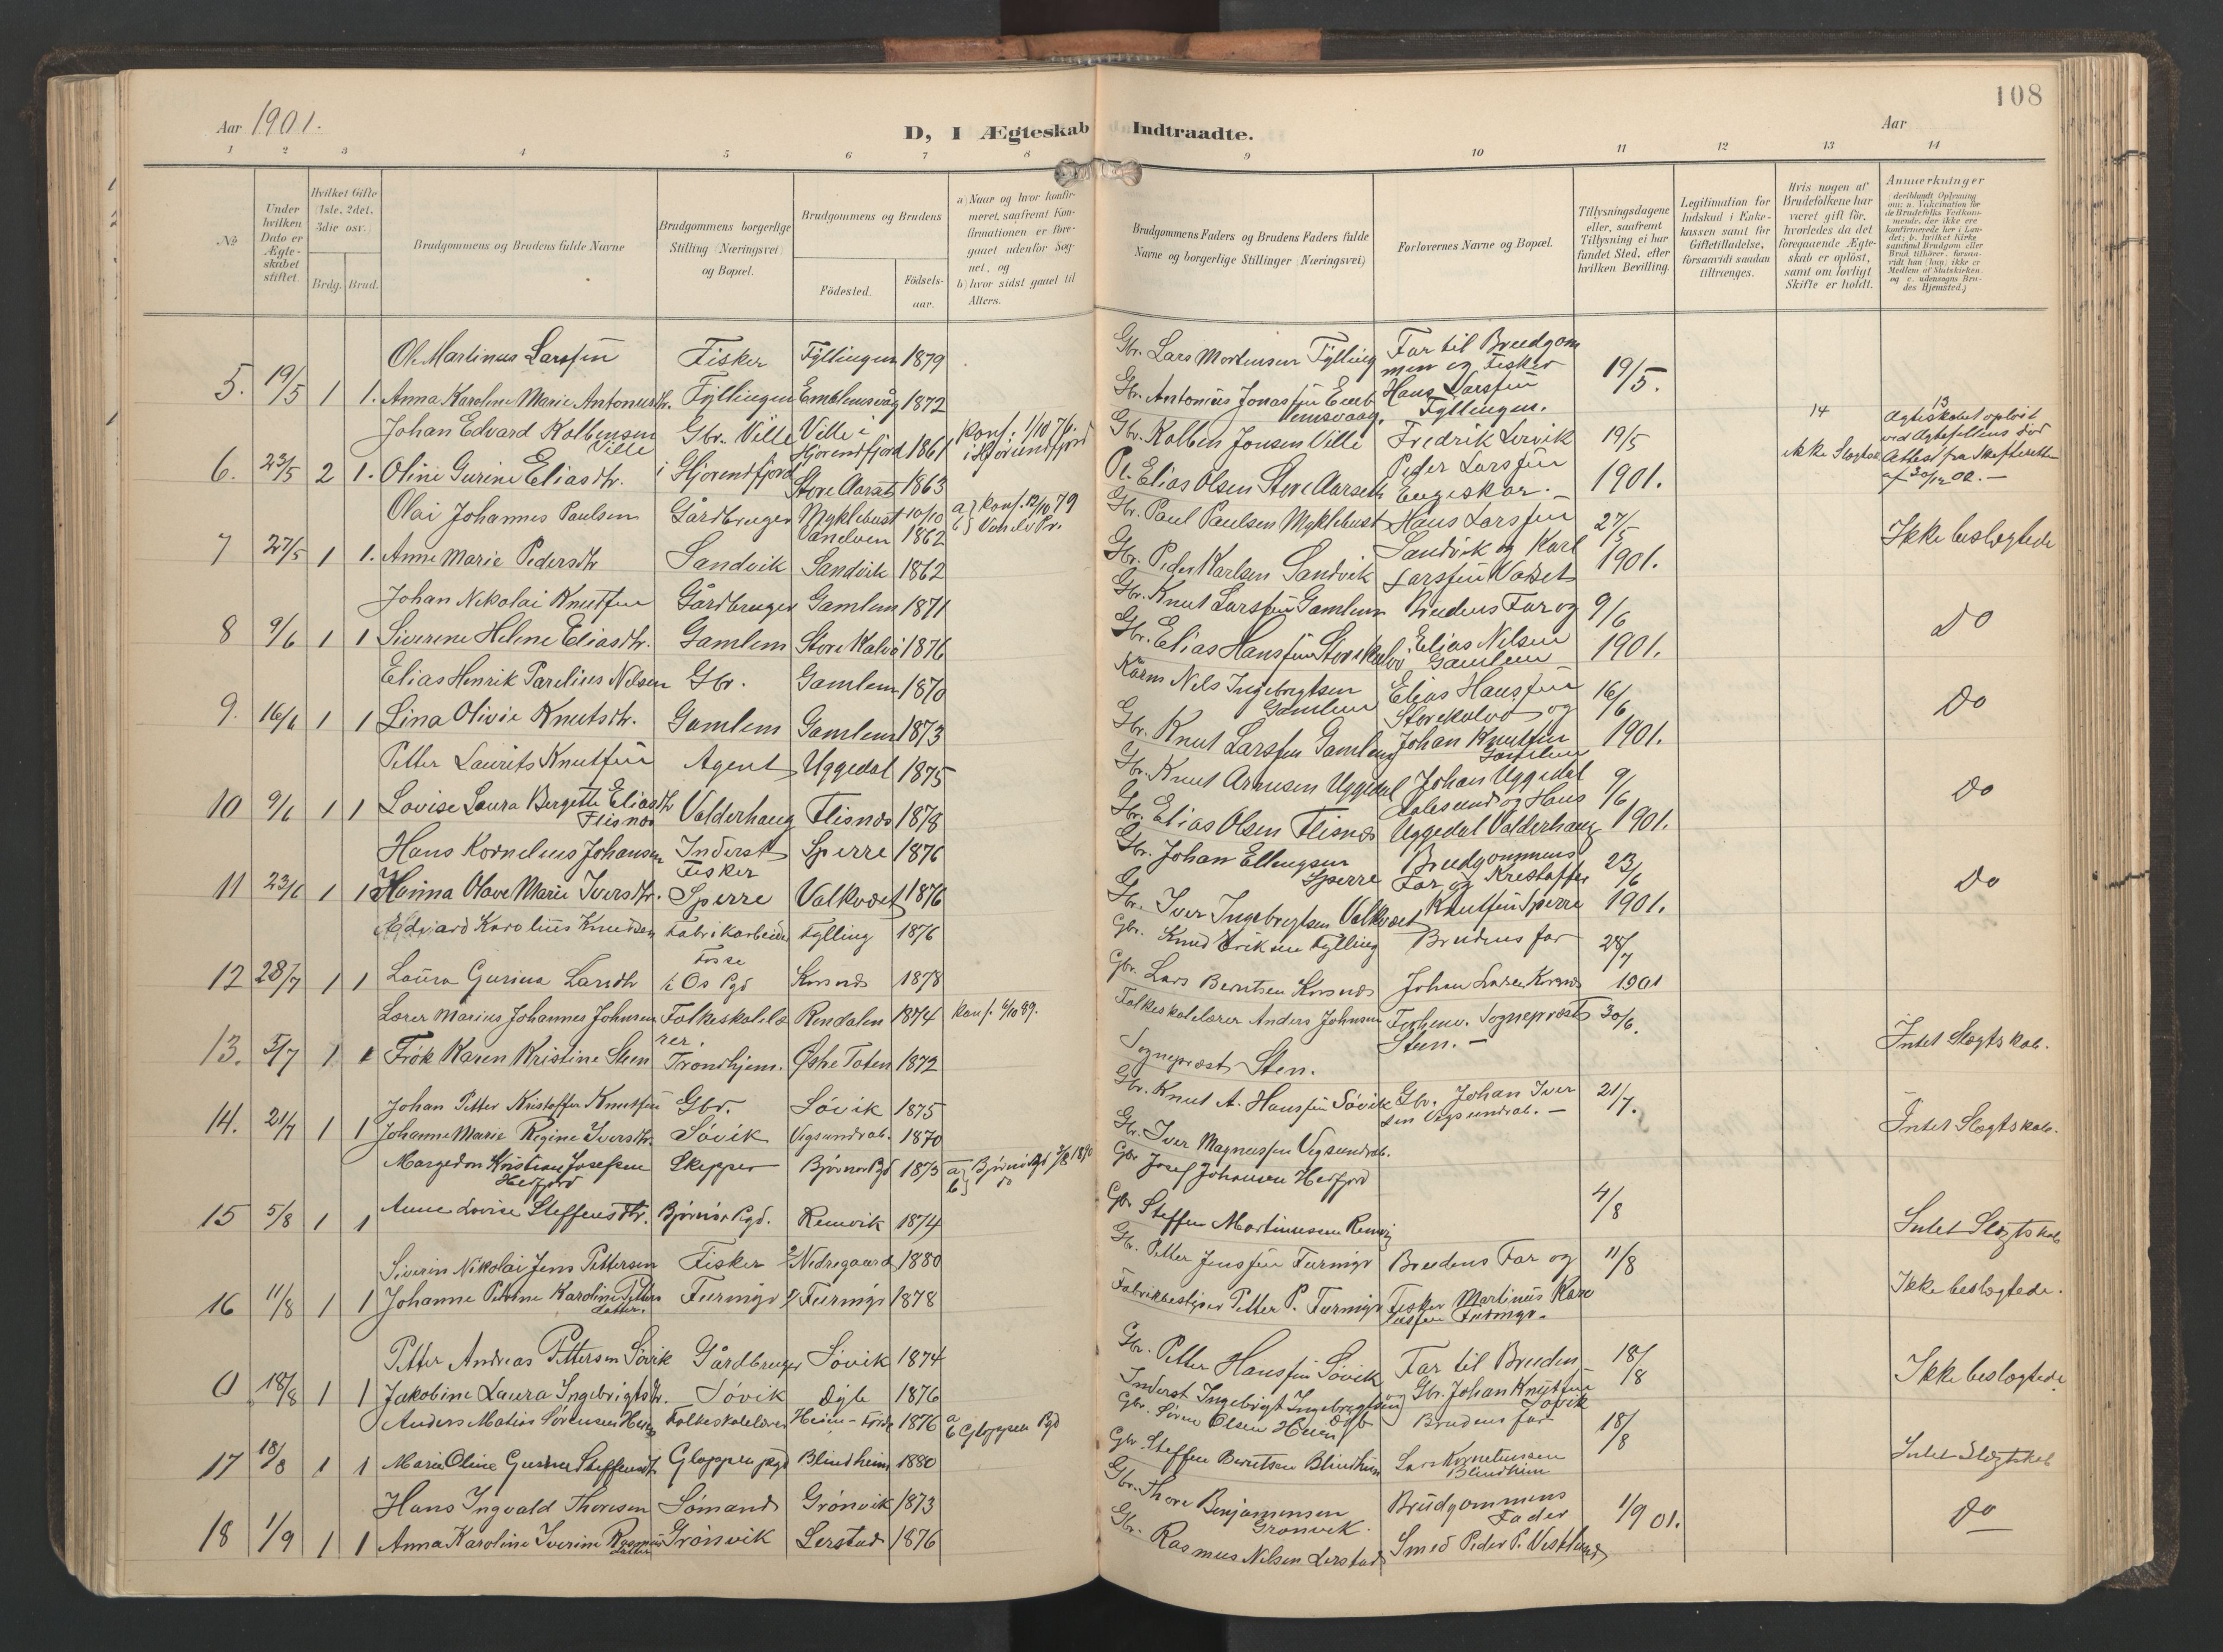 108
Aar 1901.
D, I Ægteskab Indtraadte.
Aar
1 2 3 4 5 6 7 8 9 10 11 12 13 14
No
Under hvilken Dato er Ægteskabet stiftet.
Hvilket Gifte (1ste, 2det, 3die osv.)
Brdg. Brud.
Brudgommens og Brudens fulde Navne
Brudgommens borgerlige Stilling (Næringsvei) og Bopæl.
Brudgommens og Brudens
Födested.
Födselsaar.
a) Naar og hvor konfirmeret, saafremt Konfirmationen er foregaaet udenfor Sognet, og
b) hvor sidst gaaet til Alters.
Brudgommens Faders og Brudens Faders fulde Navne og borgerlige Stillinger (Næringsvei)
Forlovernes Navne og Bopæl.
Tillysningsdagene eller, saafremt Tillysning ei har fundet Sted, efter hvilken Bevilling.
Legitimation for Indskud i Enkekassen samt for Giftetilladelse, forsaavidt saadan tiltrænges.
Hvis nogen af Brudefolkene har været gift för, hvorledes da det foregaaende Ægteskab er oplöst, samt om lovligt Skifte er holdt.
Anmærkninger
Ole Martinus Larssen Fisker Fyllingen 1879 Gbr. Lars Mortensen Fylling Far til Brudgommen og Fisker
5. 19/5 1 1. Anna Karoline Marie Antonusdtr. Fyllingen Emblemsvåg 1872 Gbr. Antonius Jonassen Emblemsvaag. Hans Larssen Fyllingen. 19/5.
Johan Edvard Kolbensen Ville Gbr. Ville Ville i Hjörendfjord 1861 Konf. 1/10 76. i Hjörendfjord Gbr. Kolben Jonsen Ville Fredrik Lervik 19/5 14 13 Ægteskabet oplöst ved Ægtefellens död
6. 23/5 2 1. Oline Gurine Eliasdtr. i Hjörendfjord Store Aarset 1863 Pl. Elias Olsen Store Aarseth Peder Larssen 1901. ikke Slægtsk. Attest fra Skifteretten
Olai Johannes Paulsen Gårdbruger Myklebust Vanelven 10/10 1862 a) Konf. 12/10 79 b) Vanelv Pr. Gbr. Paul Paulsen Myklebust Hans Larssen 27/5
7 27/5 1 1. Anne Marie Pedersdtr Sandvik Sandvik 1862 Gbr. Peder Karlsen Sandvik Sandvik og Karl Larssen Vadset 1901. Ikke beslægtede
Johan Nikolai Knutsen Gårdbruger Gamlem 1871 Gbr. Knut Larssen Gamlem Brudens Far og 9/6
8 9/6 1 1 Siverine Helene Eliasdtr. Gamlem Store Kalvö 1876 Gbr. Elias Hanssen Storekalvö Elias Nilsen Gamlem 1901. do
Elias Henrik Parelius Nilsen Gbr. Gamlem 1870 Kårm Nels Ingebregtsen Gamlem Elias Hanssen 16/6
9. 16/6 1 1 Lina Olivie Knutsdtr. Gamlem Gamlem 1873 Gbr. Knut Larssen Gamlem Storekalvö og Johan Knutsen Gamlem 1901. do
Petter Laurits Knutsen Agent Uggedal 1875 Gbr. Knut Arnesen Uggedal Johan Uggedal 9/6
10 9/6 1 1 Lovise Laura Bergette Eliasdtr Flisnæs Valderhaug Flisnæs 1878 Gbr. Elias Olsen Flisnæs Aalesund og Hans Uggedal Valderhaug 1901. do
Hans Kornelius Johansen Inderst Fisker Sperre 1876 Gbr. Johan Ellingsen Sperre Brudgommens 23/6
11 23/6 1 1 Hanna Olave Marie Iversdtr. Sperre Valkvæt 1876 Gbr. Iver Ingebregtsen Valkvæt Far og Kristoffer Knutsen Sperre 1901. do
Edvard Karolius Knudsen Fabrikarbeider Fylling 1876 Gbr. Knud Eriksen Fylling Brudens far 28/7
12 28/7 1 1 Laura Gurina Larsdtr Fosse i Os Pgd Korsnæs 1878 Gbr. Lars Berntsen Korsnæs Johan Larsen Korsnæs 1901
Lærer Marius Johannes Johnsen Folkeskolelærer. Rendalen 1874 Konf. 6/10 89. Folkeskolelærer Anders Johnsen Forhenv. Sogneprest 30/6.
13. 3/7 1 1 Frök Karen Kristine Steen Trondhjem. Østre Toten 1872 Sogneprest Sten. Steen. Intet Slægtskab.
Johan Petter Kristoffer Knutsen Gbr. Sövik 1875 Gbr. Knut A. Hanssen Sövik Gbr. Johan Iversen Vegsundsal. 21/7.
14. 21/7 1 1 Johanne Marie Regine Iversdtr. Sövik Vegsundsal. 1870 Gbr. Iver Magnussen Vegsundsal. Intet Slægtskab.
Margedon Kristian Josefsen Hesfjord Skipper Bjørnør Pgd 1873 a) Bjørnør Pgd 1890 b) do Gbr Josef Johansen Hesfjord
15 5/8 1 1 Anne Lovise Steffensdtr. Bjørnør Pgd. Remvik 1874 Gbr Steffen Martinussen Remvig 4/8 Intet Slægtskab
Siverin Nikolai Jens Pettersen Fisker Nedregaard 1880 Gbr. Petter Jenssen Furmyr Brudens Far og 11/8
16 11/8 1 1 Johanne Petrine Karoline Pettersdatter. Furmyr Furmyr 1878 Fabrikbestyrer Petter P. Furmyr Fisker Martinus Karolussen Furmyr. Ikke beslægtede.
Petter Andreas Pettersen Sövik Gårdbruger Sövik 1874 Gbr. Petter Hanssen Sövik Far til Bruden 18/8
0 18/8 1 1 Jakobine Laura Ingebrigtsdtr. Sövik Digle 1876 Inderst Ingebrigt Ingebregtsen og Gbr. Johan Knutsen Sövik Ikke beslægtede
Anders Matias Sørensen Folkeskolelærer 1876 a b Gloppen Pgd Gbr. Sören Olsen Brudens far 18/8
17 18/8 1 1 Marie Oline Gurine Steffensdtr Gloppen pgd Blindheim 1880 Gbr. Steffen Berntsen Blindheim Lars Korneliussen Blindheim Intet Slægtskab
Hans Ingvald Thoresen Sömand Grönvik 1873 Gbr. Thore Benjaminsen Grönvik. Brudgommens Fader 1/9 01.
18 1/9 1 1 Anna Karoline Iverine Rasmusdatter Grönvik Lerstad 1876 Gbr. Rasmus Nilsen Lerstad Smed Peder P. Vestlund do